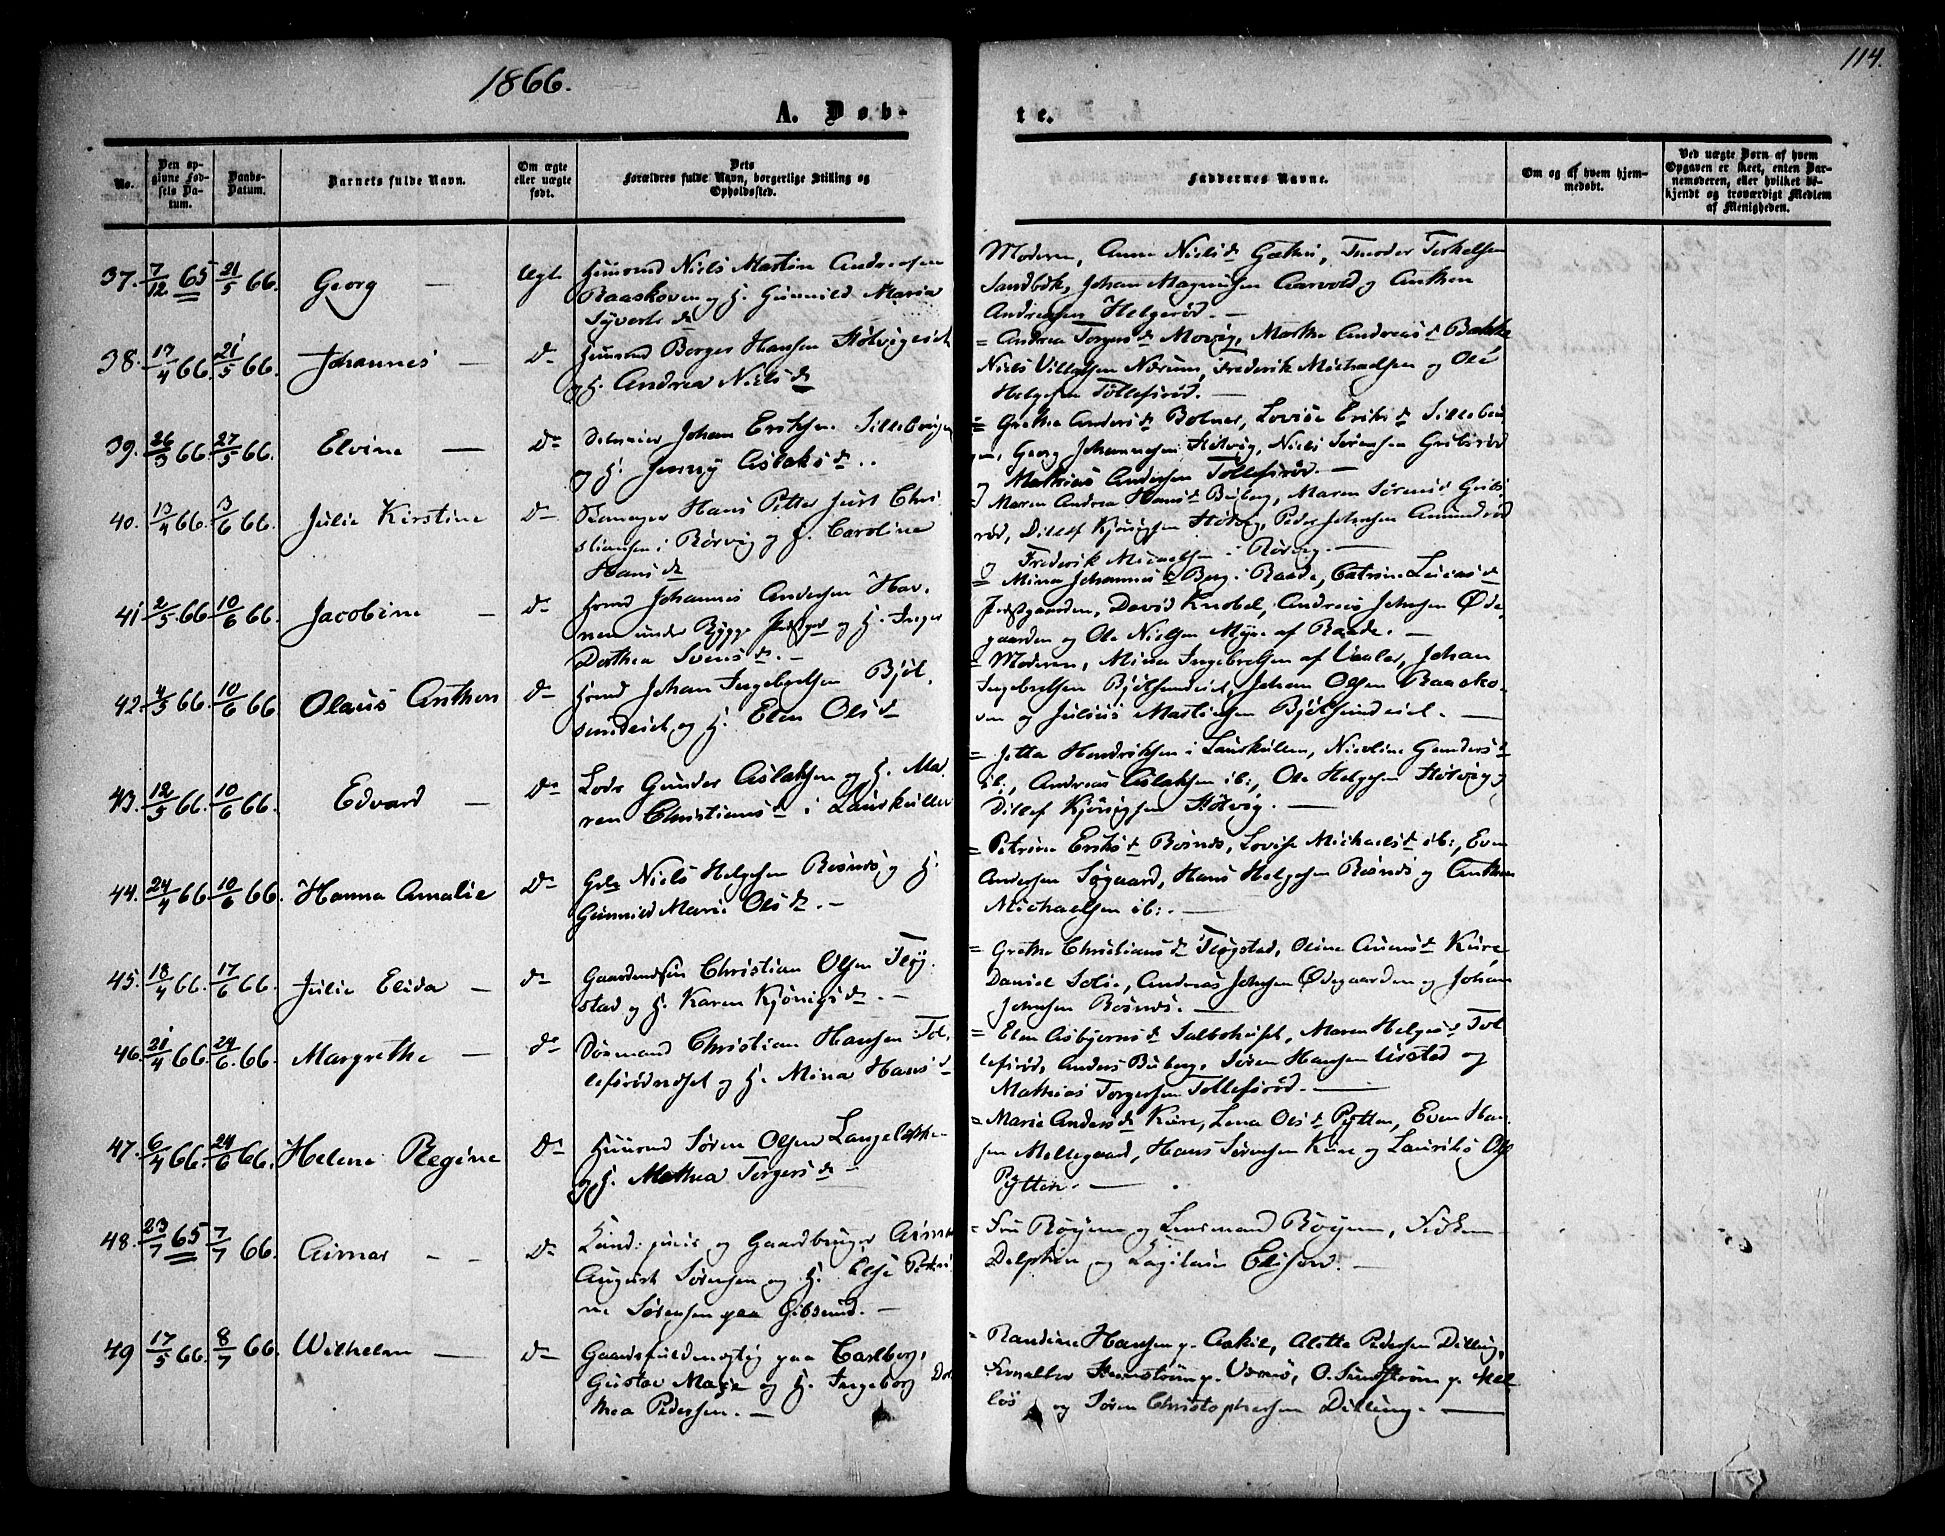 114.
1866.
A. Døb-
te.
No.
Den op-
givne Fød-
sels Da-
tum.
Daabs-
Datum.
Barnets fulde Navn.
Om ægte
eller uægte
født.
Dets
Forældres fulde Navn, borgerlige Stilling og
Opholdssted.
Faddernes Navne.
Om og af hvem hjem-
medøbt.
Ved uægte Børn af hvem
Opgaven er skeet, enten Bar-
nemoderen, eller hvilket be-
kjendt og troværdigt Medlem
af Menigheden.
37. 7/12 65 21/5 66. Georg — Ægt
Huusmd Niels Martin Andreasen
Raaskoven og H. Gunnild Maria
Syverts d.
Moderen, Anne Niels d. Terkelsen
Sandbæk, Johan Magnusen Aarvold og Anthon
Andreasen Helgerød. —
38. 17/4 66. 21/5 66. Johannes — Do
Huusmd Borger Hansen Støtvigeiet
og H. Andrea Niels d.
= Andrea Torgers d. Movig, Marthe Andreas d. Bakke
Niels Villadsen Nærum, Frederik Michaelsen og Ole
Helgesen Tollefsrød. —
39. 26/3 66. 27/5 66. Elvine — Do
Johan Eriksen Sillebøigen
og H. Jenny Aslaks d.
= Grethe Anders d. Bolner, Lovise Eriks d. Sillebøi
gen, Georg Johannesen Støtvig, Niels Sørensen Gribsrød
og Mathias Andersen Tollefsrød. —
40. 13/4 66. 3/6 66. Julie Kirstine Do
Hans Petter Just Chri-
stiansen i Rørvig og H. Caroline
Hans d.
= Maren Andrea Hans d. Buberg, Maren Sørens d. Gribs
rød, Ditlef Kjønigsen Støtvig, Peder Johnsen Amundrød
og Frederik Micaelsen i Rørvig. —
41. 2/5 66. 10/6 66. Jacobine — Do
Johannes Andersen Hav-
nen under Rygge Præstgd og H. Inger
Dorthea Svens d. —
= Mina Johannes d. Berg i Raade, Catrine
Præstgaarden, David Knobel, Andreas Johnsen Øde
gaarden og Ole Nielsen Myre af Raade. —
42. 4/5 66. 10/6 66. Olaus Anthon Do
Johan Ingebretsen Bjøl-
sundeiet og H. Elen Ols d.
= Moderen, Mina Ingebretsen af Vaaler, Johan
Ingebretsen Bjølsundeiet, Johan Olsen Raasko-
ven og Julius Martinsen Bjølsundeiet. —
43. 12/5 66. 10/6 66. Edvard — Do
Lods Gunder Aslaksen og H. Ma-
ren Christians d. i Laurkullen
= Jetta Hendriksen i Laurkulen, Nicoline Gunders d.
ib:, Andreas Aslaksen ib:, Ole Helgesen Støtvig og
Ditlef Kjønigsen Støtvig. —
44. 24/4 66. 10/6 66. Hanna Amalie Do
Niels Helgesen Rosnæs og H.
Gunnild Marie Ols d. —
= Petrine Eriks d. Rosnæs, Lovise Michaels d. ib:, Even
Andersen Søgaard, Hans Helgesen Rosnæs og Anthon
Michaelsen ib:. —
45. 18/4 66. 17/6 66. Julie Elida — Do
Gaardmdsøn Christian Olsen Fløy-
stad og H. Karen Kjønigs d. —
= Grethe Christians d. Fløystad, Oline d. Kure
Daniel Andreas Johnsen Ødegaarden og Johan
Johnsen Rosnæs. —
46. 21/4 66. 24/6 66. Margrethe — Do
Sømand Christian Hansen Tol-
lefsrødødset og H. Mina Hans d.
= Elen Asbjørns d. Maren Helges d. Tol
lefsrød, Anders Buberg, Søren Hansen og
Mathias Torgersen Tollefsrød. —
47. 6/4 66. 24/6 66. Helene Regine Do
Huusmd Søren Olsen
og H. Mathea Torgers d. —
= Marie Anders d. Kure, Lena Ols d. Pytten, Even Han-
sen Mellegaard, Hans Sørensen Kure og Lauritz Ols
Pytten. —
48. 23/7 65 7/7 66. Aimar — Do
Kand: juris og Gaardbruger Aimar
August Sørensen og H. Else Petri
ne Sørensen paa Gibsund. —
= Fru Røyem og Lensmand Røyem, Frøken
Delphin og Kapitain —
49 17/5 66. 8/7 66. Wilhelm — Do
Gaardsfuldmægtig paa Carlberg,
Gustav og H. Ingeborg Dor
thea Pedersen. —
= Randine Hansen p. Askil, Alette Pedersen Dilling,
Værnø, O. Sundstrøm p. Mel-
løs og Søren Christophersen Dilling. —